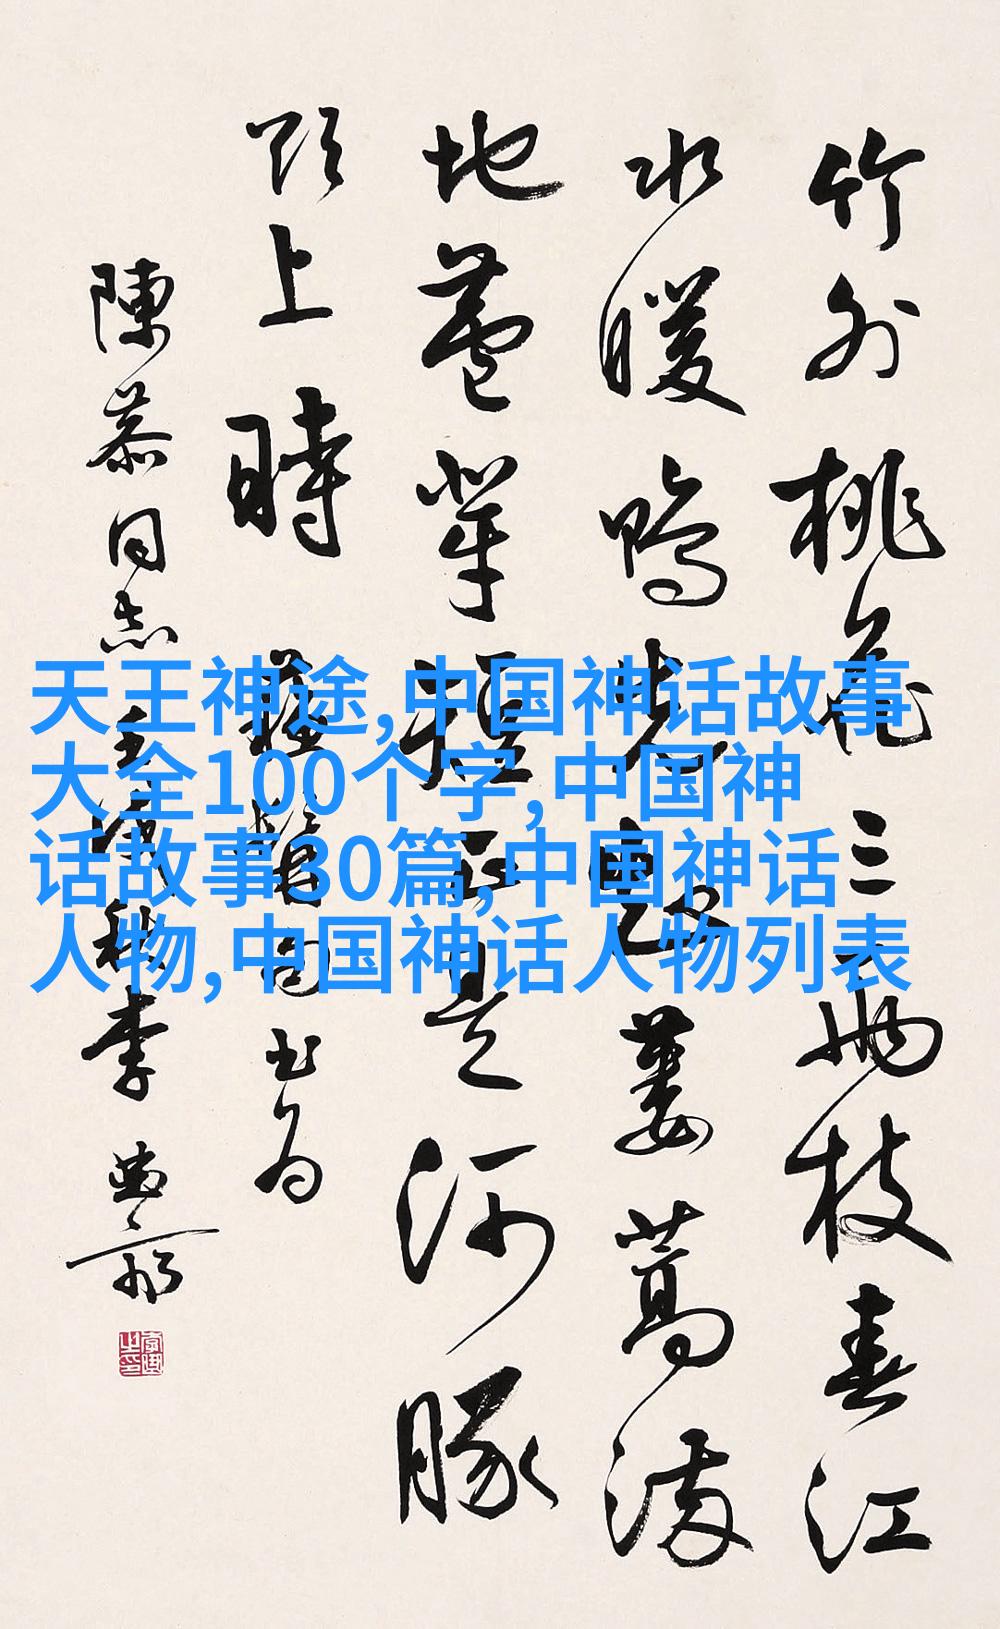 竹外桃花三兩枝春江
水暖鴨先知蔞蒿滿
地蘆芽短正是河豚
欲上時 蘇句书为
陳同志 秋李
天王神途,中国神话故事
大全100个字,中国神
话故事30篇,中国神话
人物,中国神话人物列表